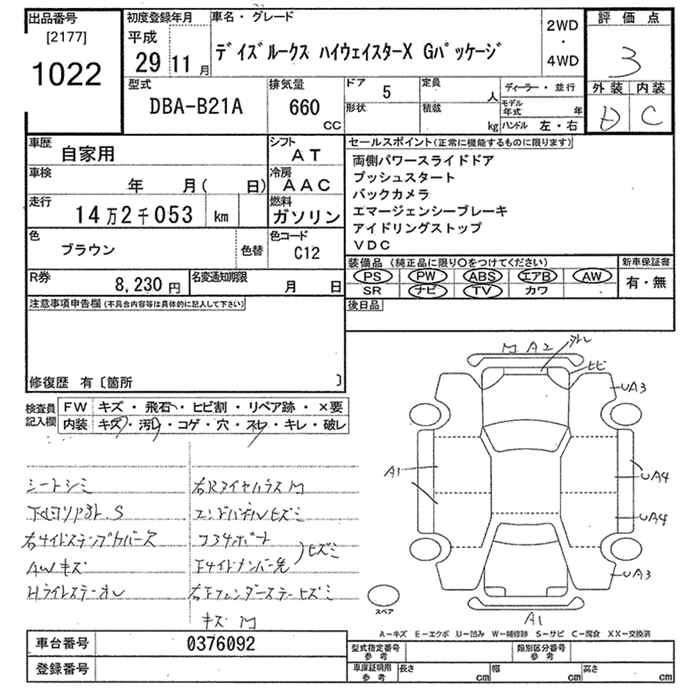 出品番号
[2177]
1022
初度登録年月
平成
29 11 月
車名・グレード
デイズルークス ハイウェイスターX Gパッケージ
2WD
・
4WD
評価点
3
外装 内装
D C
型式
DBA-B21A
排気量
660
CC
ドア 5
形状
定員
人
積載
kg
ディーラー・並行
モデル年式 年
ハンドル 左・右
車歴
自家用
シフト
AT
車検
年 月( 日)
冷房
AAC
走行
14万2千053 km
燃料
ガソリン
色
ブラウン
色替
色コード
C12
R券
8,230 円
名変通知期限
月 日
セールスポイント(正常に機能するものに限ります)
両側パワースライドドア
プッシュスタート
バックカメラ
エマージェンシーブレーキ
アイドリングストップ
VDC
装備品 (純正品に限り○をつけてください)
PS PW ABS エアB AW
SR ナビ TV カワ
新車保証書
有・無
後日品
注意事項申告欄(不具合内容等は具体的に記入して下さい)
修復歴 有〔箇所 〕
検査員
記入欄
FW キズ・飛石・ヒビ割・リペア跡・×要
内装 キズ・汚れ・コゲ・穴・スレ・キレ・破レ
シートシミ
AWキズ
エンドパネルヒズミ
ヒズミ
キズ M
M A2
ヒビ
UA3
A1
UA4
UA4
UA3
A1
スペア
A-キズ E-エクボ U-凹み W-補修跡 S-サビ C-腐食 XX-交換済
車台番号
0376092
登録番号
型式指定番号
参考
類別区分番号
参考
車庫証明用
参考
長さ cm
幅 cm
高さ cm